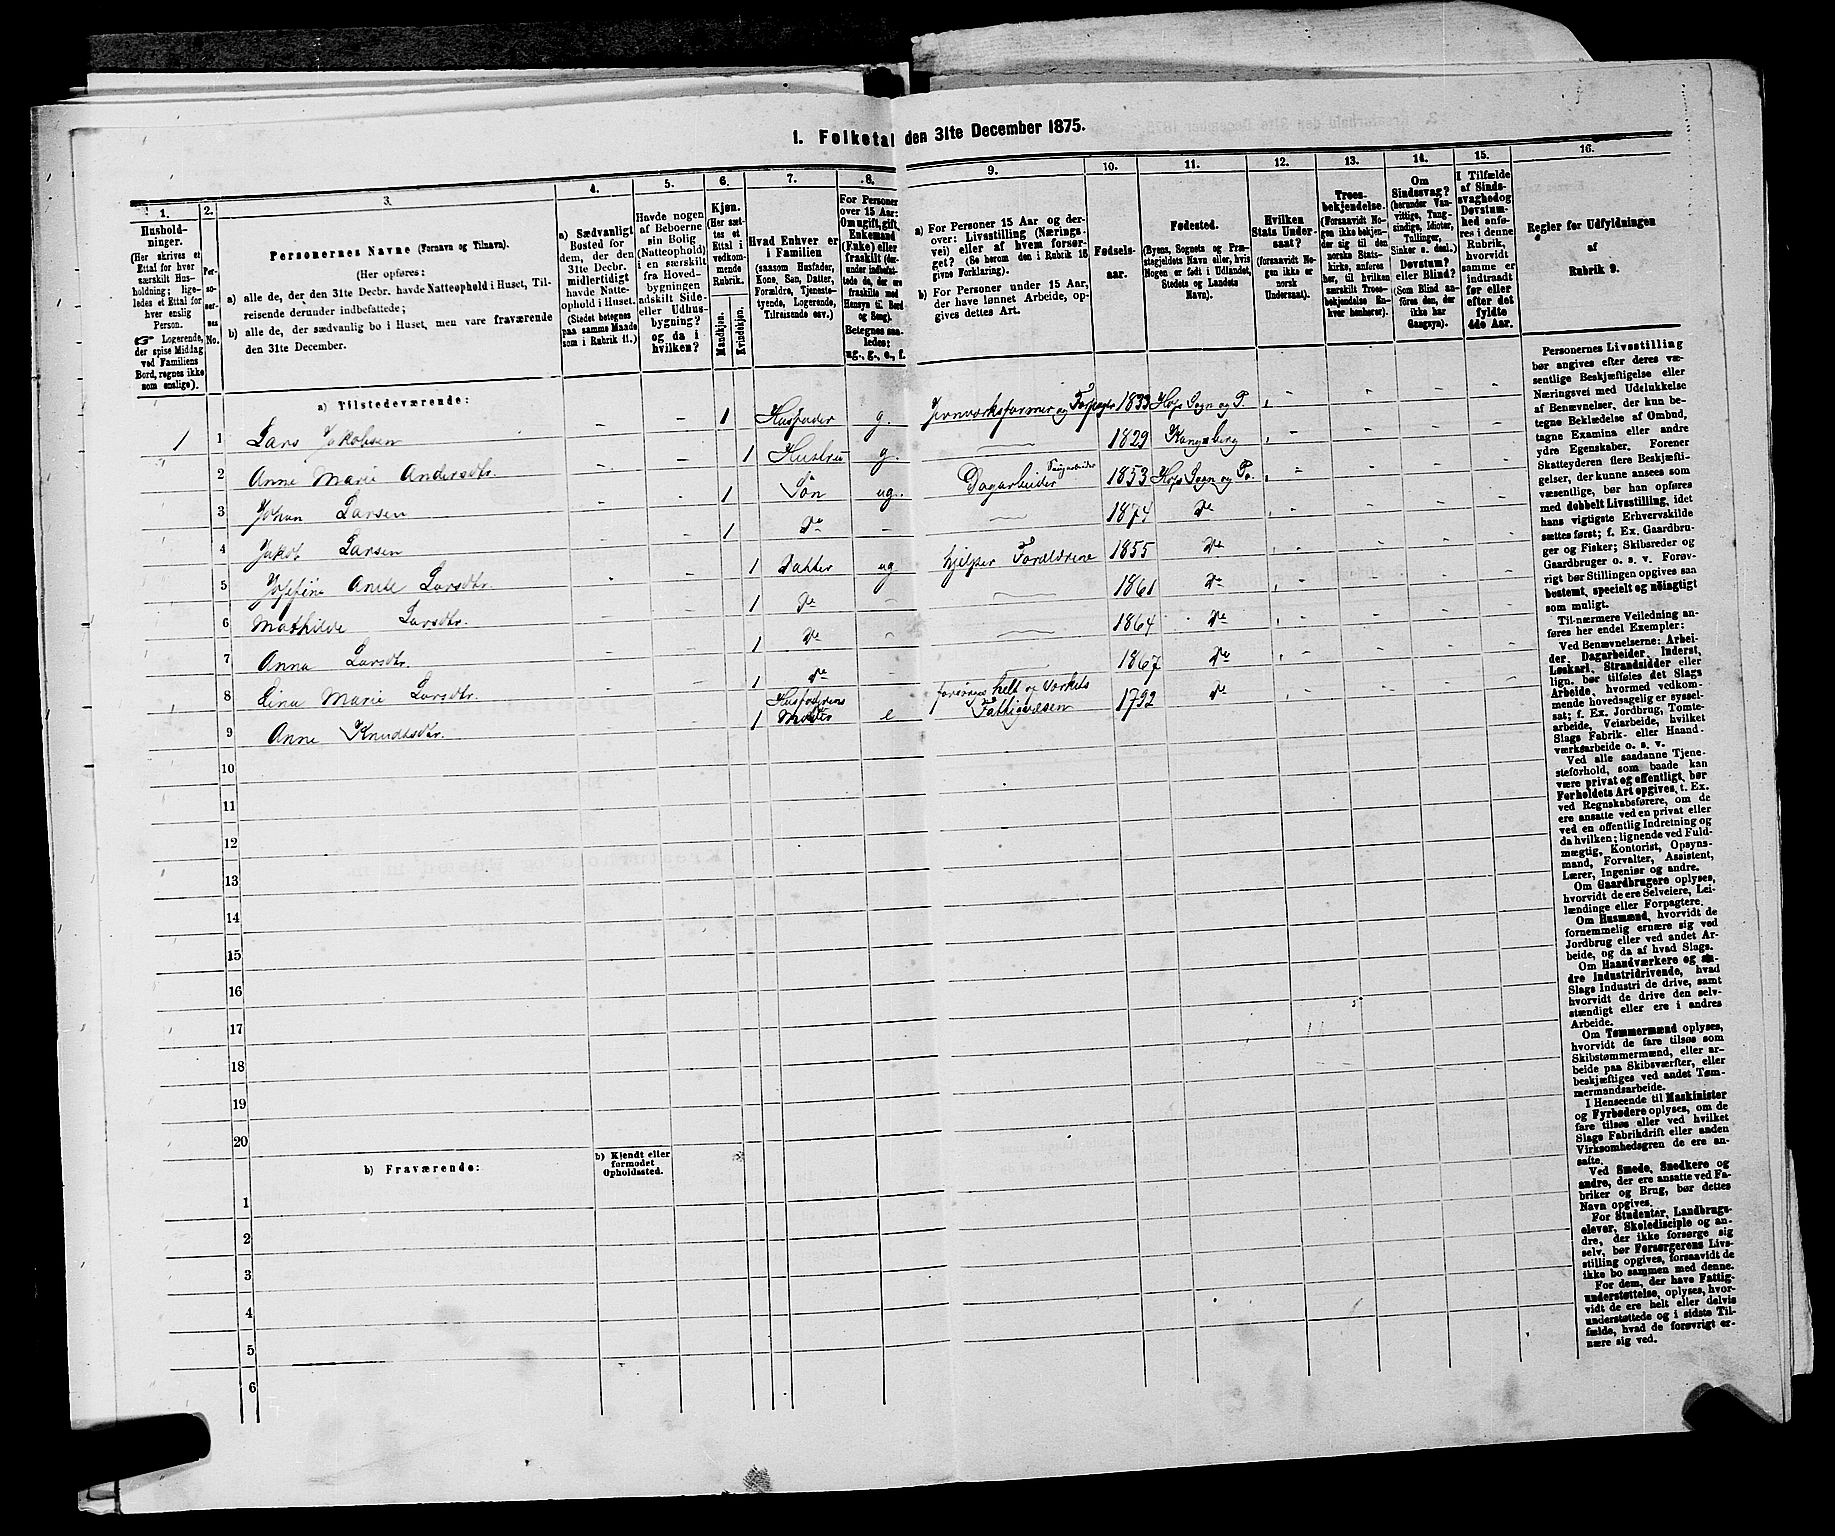 1. Folketal den 31te December 1875.
1.
Hushold-
ninger.
(Her skrives et
Ettal for hver
særskilt Hus-
holdning; lige-
ledes et Ettal for
hver enslig
Person.
☞ Logerende,
der spise Middag
ved Familiens
Bord, regnes ikke
som enslige).
2.
Per-
so-
ner-
nes
No.
3.
Personernes Navne (Fornavn og Tilnavn).
(Her opføres:
a) alle de, der den 31te Decbr. havde Natteophold i Huset, Til-
reisende derunder indbefattede;
b) alle de, der sædvanlig bo i Huset, men vare fraværende
den 31te December.
4.
a) Sædvanligt
Bosted for
dem, der den
31te Decbr.
midlertidigt
havde Natte-
ophold i Huset.
(Stedet betegnes
paa samme Maade
som i Rubrik 11.)
5.
Havde nogen
af Beboerne
sin Bolig
(Natteophold)
i en særskilt
fra Hoved-
bygningen
adskilt Side-
eller Udhus-
bygning?
og da i
hvilken?
6.
Kjøn.
(Her sæt-
tes et
Ettal i
vedkom-
mende
Rubrik.
Mandkjøn.
Kvindekjøn.
7.
Hvad Enhver er
i Familien
(saasom Husfader,
Kone, Søn, Datter,
Forældre, Tjeneste-
tyende, Logerende,
Tilreisende osv.)
8.
For Personer
over 15 Aar:
Om ugift, gift,
Enkemand
(Enke) eller
fraskilt (der-
under indbefat-
tede de, der ere
fraskilte med
Hensyn til Bord
og Seng).
Betegnes saa-
ledes:
ug., g., e., f.
9.
a) For Personer 15 Aar og der-
over: Livsstilling (Nærings-
vei) eller af hvem forsør-
get? (Se herom den i Rubrik 16
givne Forklaring).
b) For Personer under 15 Aar,
der have lønnet Arbeide, op-
gives dettes Art.
10.
Fødsels-
aar.
11.
Fødested.
(Byens, Sognets og Præ-
stegjeldets Navn eller, hvis
Nogen er født i Udlandet,
Stedets og Landets
Navn).
12.
Hvilken
Stats Under-
saat?
(forsaavidt No-
gen ikke er
norsk
Undersaat).
13.
Troes-
bekjendelse.
(Forsaavidt No-
gen ikke bekjen-
der sig til den
norske Stats-
kirke, anføres
her, til hvilken
særskilt Troes-
bekjendelse En-
hver henhører).
14.
Om
Sindssvag?
(herunder Van-
vittige, Tung-
sindige, Idioter,
Tullinger,
Sinker o. desl.)
Døvstum?
eller Blind?
(Som Blind an-
føres den, der
ikke har
Gangsyn).
15.
I Tilfælde
af Sinds-
svaghed og
Døvstum-
hed anfø-
res i denne
Rubrik,
hvorvidt
samme er
indtraadt
før eller
efter det
fyldte
4de Aar.
16.
Regler for Udfyldningen
af
Rubrik 9.
a) Tilstedeværende:
1 1 Lars Jakobsen - - 1 Husfader g. Jernværksformer og Forpagter 1833 Hofs Sogn og P. -
2 Anne Marie Andersdtr. - - 1 Hustru g. — 1829 Kongsberg -
3 Johan Larsen - - 1 Søn ug. Dagarbeider 1853 Hofs Sogn og P. -
4 Jakob Larsen - - 1 do - — 1874 do -
5 Josefine Anete Larsdtr. - - 1 Datter ug hjelper Forældrene 1855 do -
6 Mathilde Larsdtr. - - 1 do - — 1861 do -
7 Anna Larsdtr. - - 1 do - — 1864 do -
8 Lina Marie Larsdtr. - - 1 do - — 1867 do -
9 Anne Knudsdtr. - - 1 Husfaderens Moder e forsørges helt og Værkets Fattigvæsen 1792 do -
10
11
12
13
14
15
16
17
18
19
20
b) Fraværende:
b) Kjendt eller
formodet
Opholdssted.
1
2
3
4
5
6
Personernes Livsstilling
bør angives efter deres væ-
sentlige Beskjæftigelse eller
Næringsvei med Udelukkelse
af Benævnelser, der kun be-
tegne Beklædelse af Ombud,
tagne Examina eller andre
ydre Egenskaber. Forener
Skatteyderen flere Beskjæfti-
gelser, der kunne ansees som
væsentlige, bør han opføres
med dobbelt Livsstilling, idet
hans vigtigste Erhvervskilde
sættes først; f. Ex. Gaardbru-
ger og Fisker; Skibsreder og
Gaardbruger o. s. v. Forøv-
rigt bør Stillingen opgives saa
bestemt, specielt og nøiagtigt
som muligt.
Til nærmere Veiledning an-
føres her endel Exempler:
Ved Benævnelserne: Arbei-
der, Dagarbeider, Inderst,
Løskarl, Strandsidder eller
lign. bør tilføies det Slags
Arbeide, hvormed vedkom-
mende hovedsagelig er syssel-
sat; f. Ex. Jordbrug, Tomte-
arbeide, Veiarbeide, hvilket
Slags Fabrik- eller Haand-
værksarbeide o. s. v.
Ved alle saadanne Tjene-
steforhold, som baade kan
være privat og offentligt, bør
Forholdets Art opgives, t. Ex.
ved Regnskabsførere, om de
ere ansatte ved en privat eller
ved en offentlig Indretning og
da hvilken; lignende ved Fuld-
mægtig, Kontorist, Opsyns-
mand, Forvalter, Assistent,
Lærer, Ingeniør og andre.
Om Gaardbrugere oplyses,
hvorvidt de ere Selveiere, Lei-
lændinge eller Forpagtere.
Om Husmænd, hvorvidt de
fornemmelig ernære sig ved
Jordbrug eller ved andet Ar-
beide, og da af hvad Slags.
Om Haandværkere og an-
dre Industridrivende, hvad
Slags Industri de drive, samt
hvorvidt de drive den selv-
stændigt eller ere i andres
Arbeide.
Om Tømmermænd oplyses,
hvorvidt de fare tilsøs som
Skibstømmermænd, eller ar-
beide paa Skibsværfter, eller
beskjæftiges ved andet Tøm-
mermandsarbeide.
I Henseende til Maskinister
og Fyrbødere oplyses, om de
fare tilsøs eller ved hvilket
Slags Fabrikdrift eller anden
Virksomhedsgren de ere an-
satte.
Ved Smede, Snedkere og
andre, der ere ansatte ved Fa-
briker og Brug, bør dettes
Navn opgives.
For Studenter, Landbrugs-
elever, Skoledisciple og an-
dre, der ikke forsørge sig
selv, bør Forsørgerens Livs-
stilling opgives, forsaavidt de
ikke bo sammen med denne.
For dem, der have Fattig-
understøttelse, oplyses, hvor-
vidt de ere helt eller delvis
understøttede og i sidste Til-
fælde, hvad de forøvrigt er-
nære sig ved.